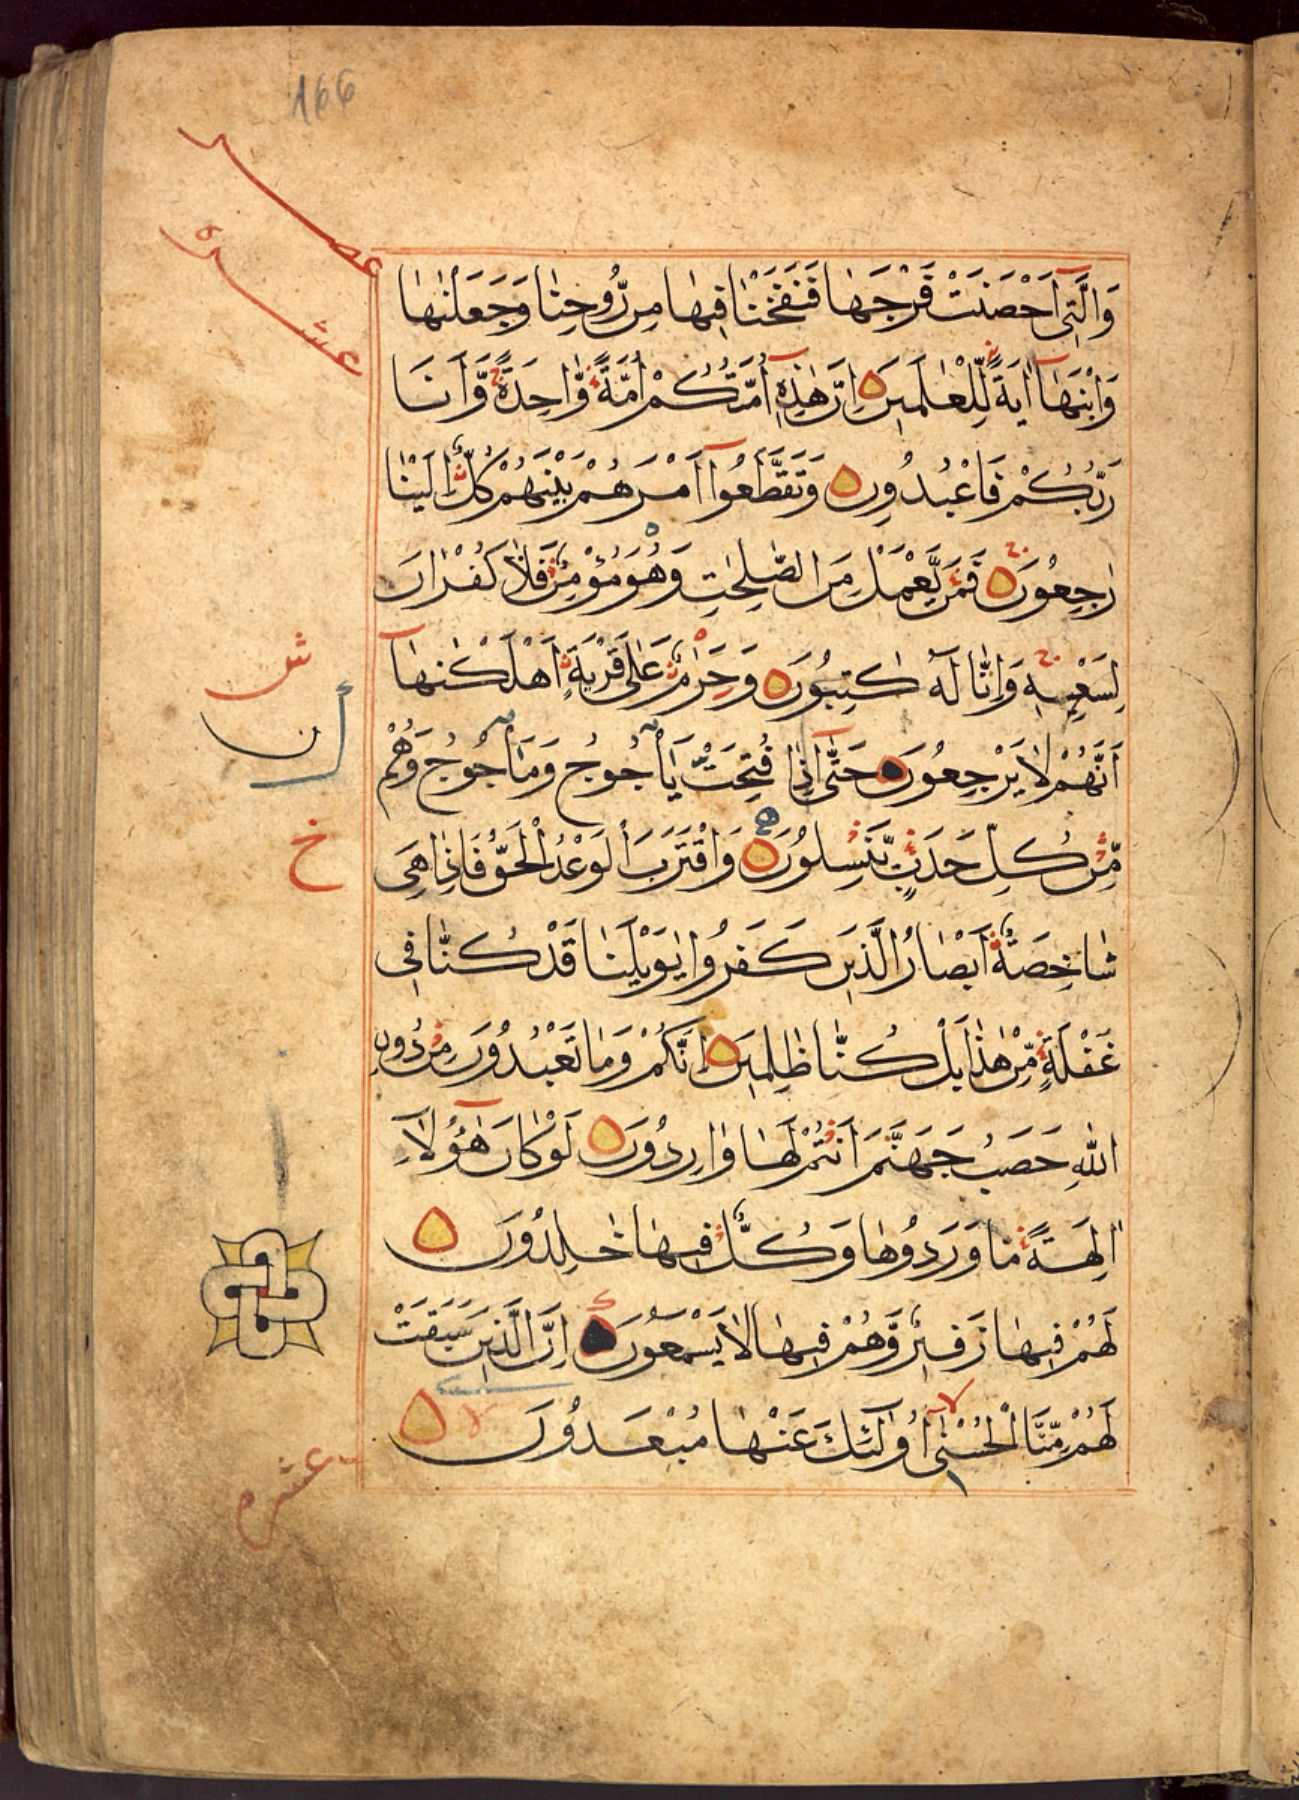 166
عصر
عشره
وَالَّتِىٓ اَحْصَنَتْ فَرْجَهَا فَنَفَخْنَا فِيهَا مِن رُّوحِنَا وَجَعَلْنٰهَا
وَابْنَهَآ اٰيَةً لِّلْعٰلَمِينَ اِنَّ هٰذِهٖٓ اُمَّتُكُمْ اُمَّةً وَّاحِدَةً وَّاَنَا
رَبُّكُمْ فَاعْبُدُونِ وَتَقَطَّعُوٓا اَمْرَهُمْ بَيْنَهُمْ كُلٌّ اِلَيْنَا
رٰجِعُونَ فَمَن يَّعْمَلْ مِنَ الصّٰلِحٰتِ وَهُوَ مُؤْمِنٌ فَلَا كُفْرَانَ
لِسَعْيِهٖ وَاِنَّا لَهٗ كٰتِبُونَ وَحَرٰمٌ عَلٰى قَرْيَةٍ اَهْلَكْنٰهَآ
ش
اَنَّهُمْ لَا يَرْجِعُونَ حَتّٰٓى اِذَا فُتِحَتْ يَاْجُوجُ وَمَاْجُوجُ وَهُمْ
ن
مِّن كُلِّ حَدَبٍ يَّنْسِلُونَ وَاقْتَرَبَ الْوَعْدُ الْحَقُّ فَاِذَا هِىَ
خ
شَاخِصَةٌ اَبْصَارُ الَّذِينَ كَفَرُوا يٰوَيْلَنَا قَدْ كُنَّا فِى
غَفْلَةٍ مِّنْ هٰذَا بَلْ كُنَّا ظٰلِمِينَ اِنَّكُمْ وَمَا تَعْبُدُونَ مِن دُونِ
اللّٰهِ حَصَبُ جَهَنَّمَ اَنْتُمْ لَهَا وَارِدُونَ لَوْ كَانَ هٰٓؤُلَآءِ
اٰلِهَةً مَا وَرَدُوهَا وَكُلٌّ فِيهَا خٰلِدُونَ
لَهُمْ فِيهَا زَفِيرٌ وَّهُمْ فِيهَا لَا يَسْمَعُونَ اِنَّ الَّذِينَ سَبَقَتْ
لَهُمْ مِّنَّا الْحُسْنٰىٓ اُولٰٓئِكَ عَنْهَا مُبْعَدُونَ
عشره